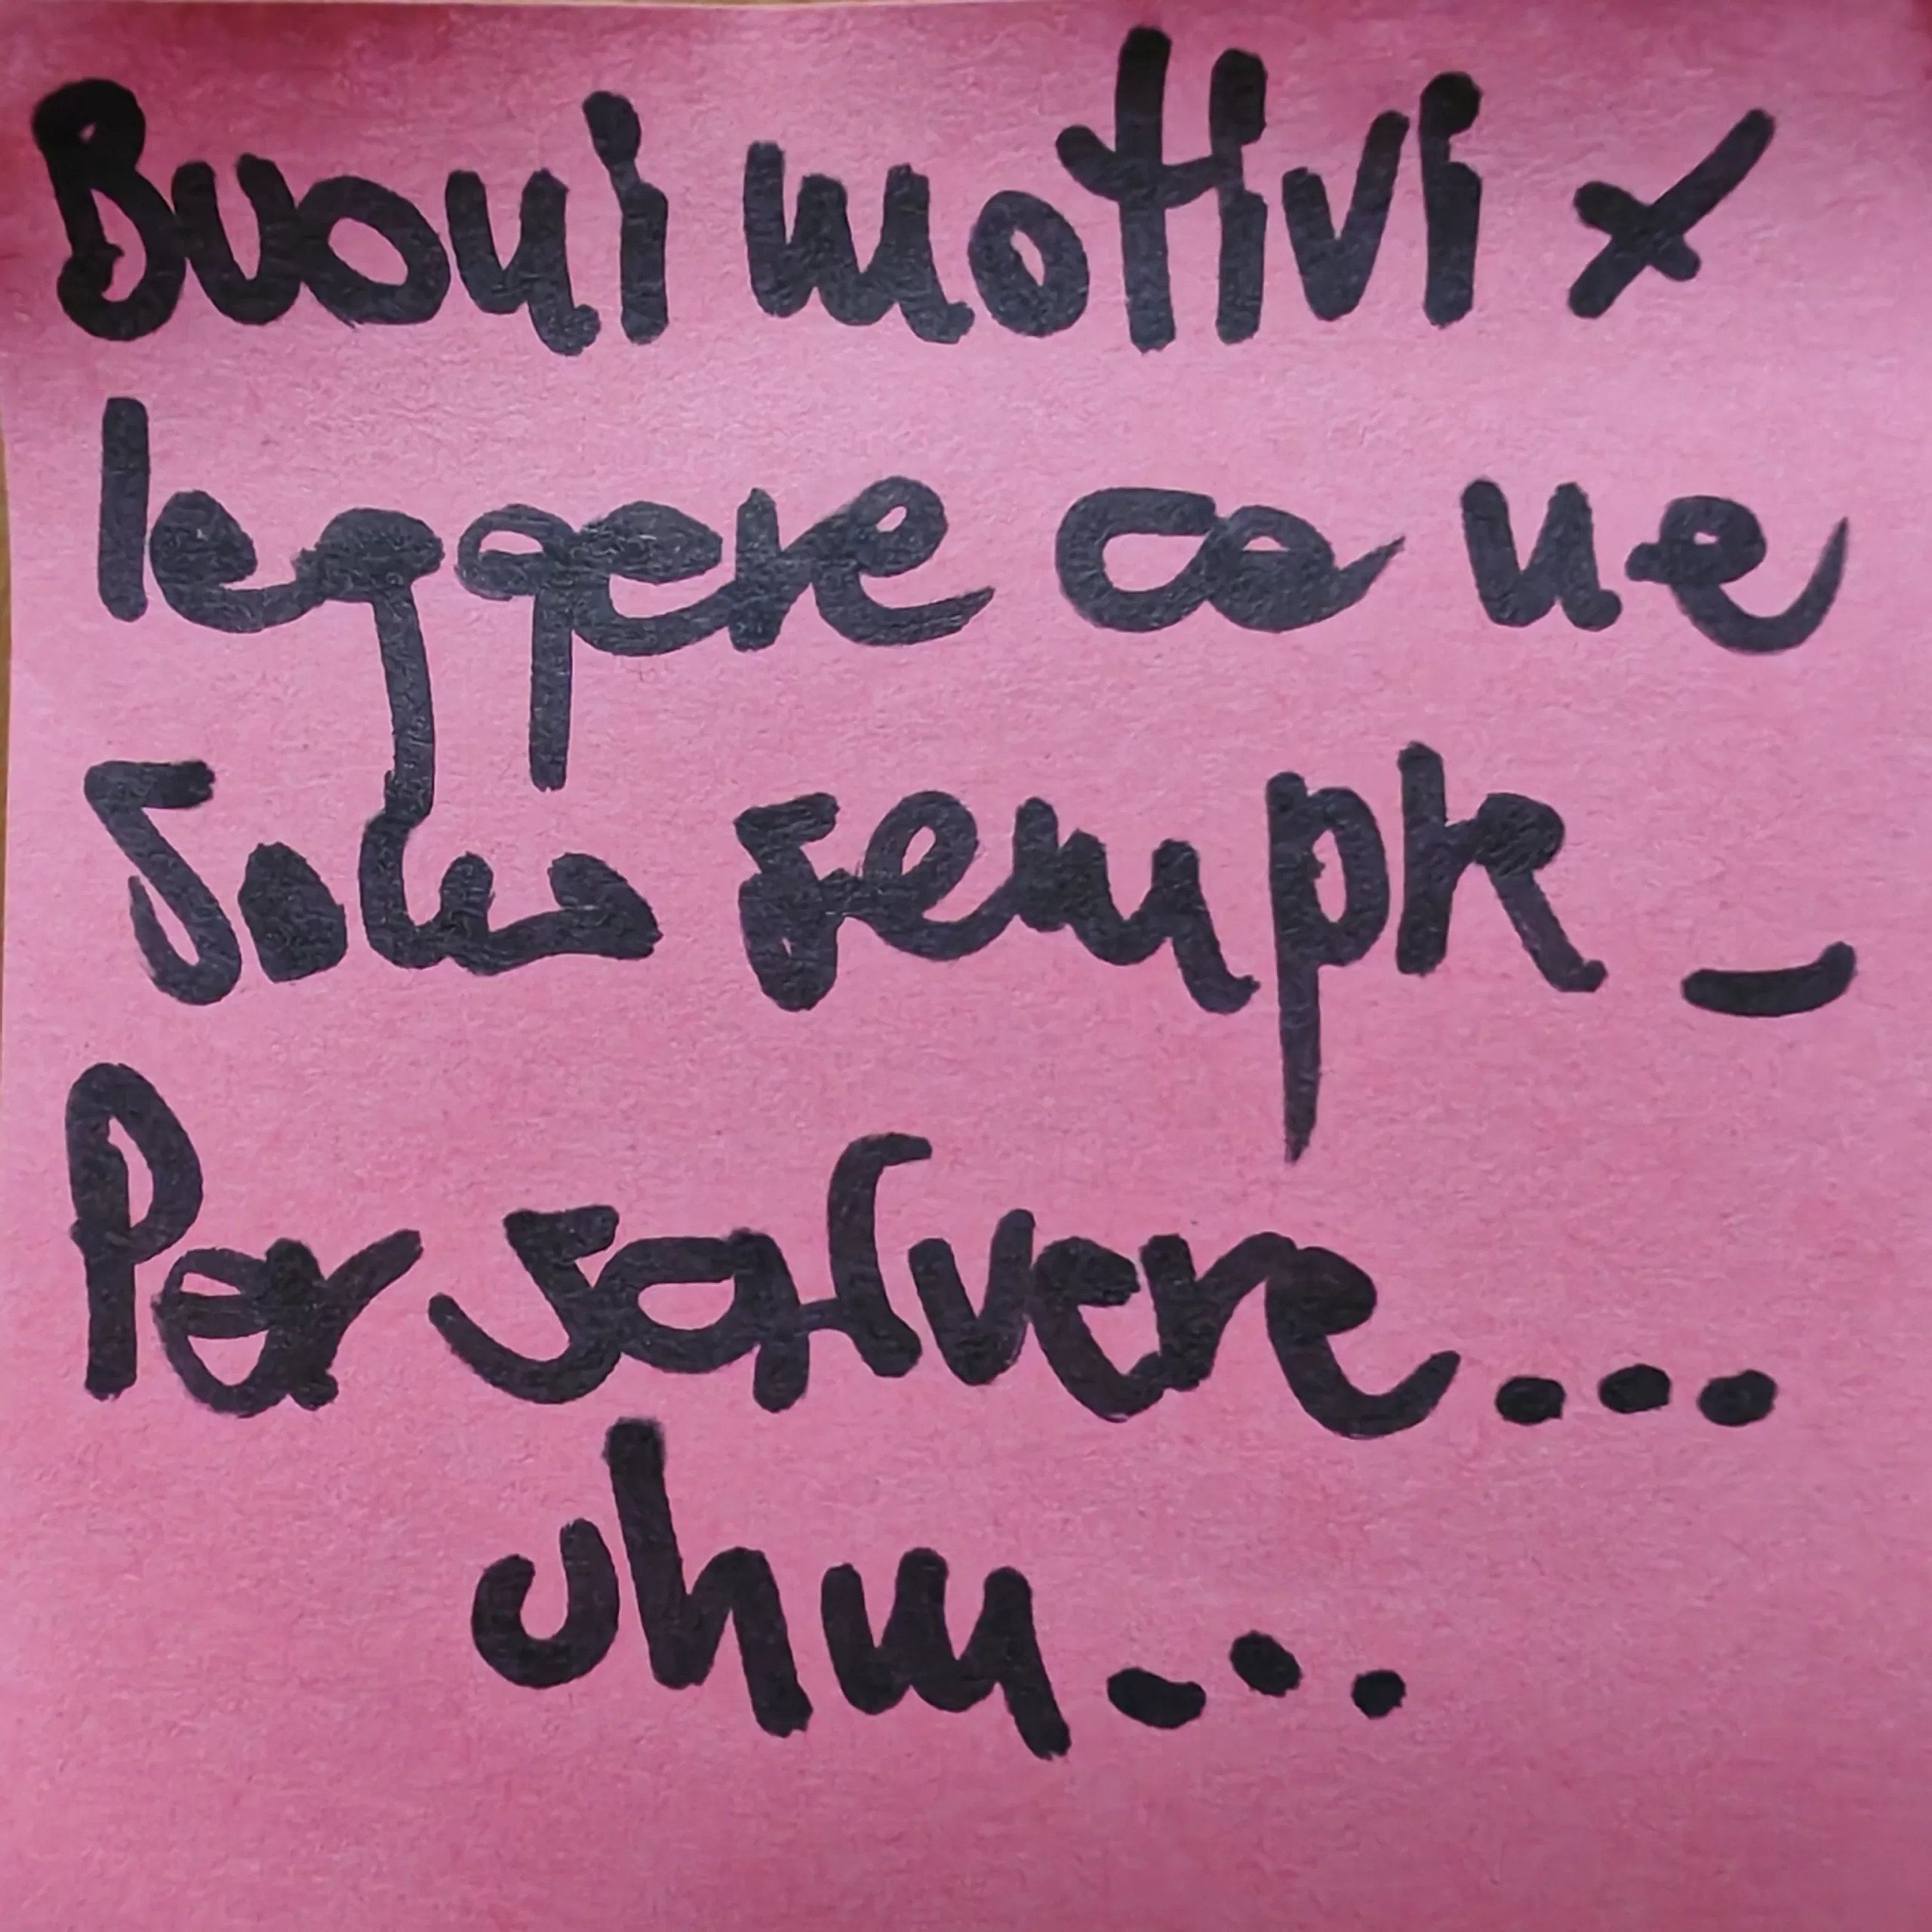 Buoni motivi x
leggere ce ne
sono sempre -
Per scrivere...
uhm...